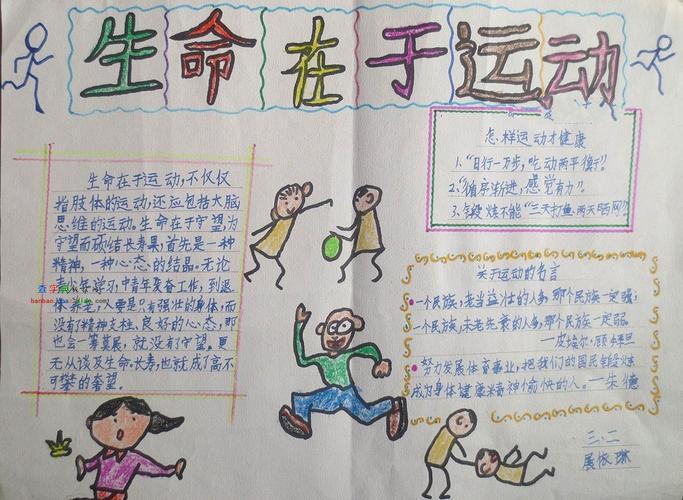 生命在于运动
生命在于运动,不仅仅
指肢体的运动,还应包括大脑
思维的运动。生命在于守望,为
守望而硕结长寿果,首先是一种
精神,一种心态的结晶。无论
学习,中青年发奋工作,到退
休养老,人要是只有强壮的身体,而
没有精神支柱、良好的心态,那
也会一筹莫展,就没有守望。更
无从谈及生命.长寿,也就成了高不
可攀的奢望。
怎样运动才健康
1.“日行一万步,吃动两平衡”。
2.“循序渐进,感觉有力”。
3.锻炼不能“三天打鱼,两天晒网”?
关于运动的名言
一个民族,老当益壮的人多,那个民族一定强;
一个民族,未老先衰的人多,那个民族一定弱。
—皮埃尔·顾拜旦
努力发展体育事业,把我们的国民锻炼
成为身体健康精神愉快的人。—朱德
三、二
展依琳